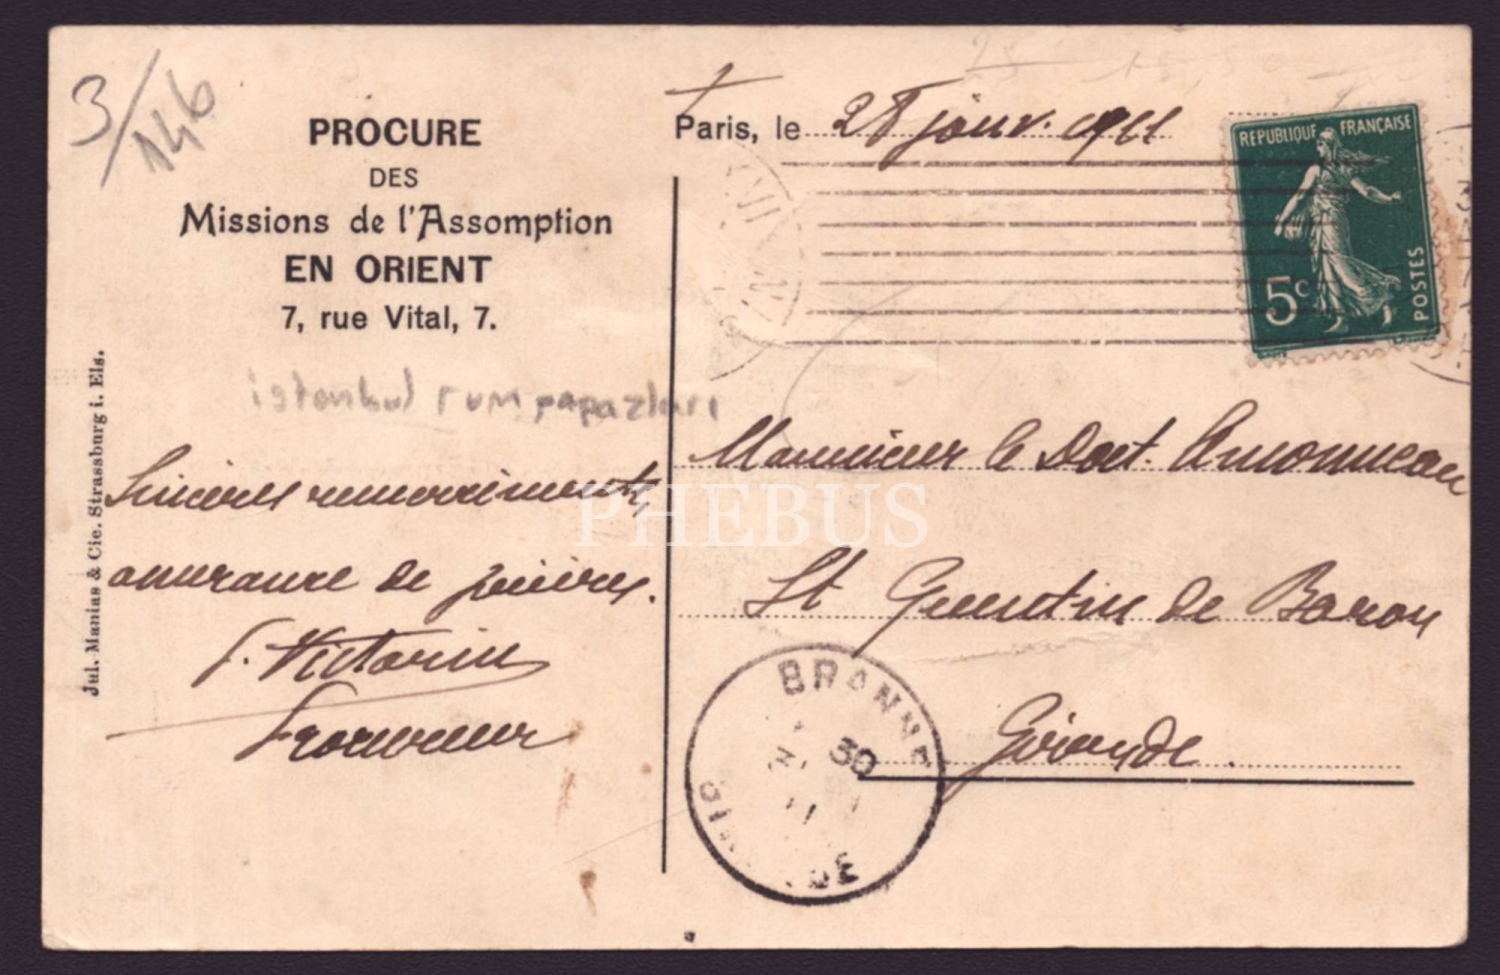 3/146
PROCURE
DES
Missions de l'Assomption
EN ORIENT
7, rue Vital, 7.
istanbul rum papazları
Sincères remerciements,
assurance de prières.
f. Victorin
Procureur
Jul. Manias & Cie. Strassburg i. Els.
Paris, le 28 janv. 1911
REPUBLIQUE FRANÇAISE
5c
POSTES
Monsieur le Doct. Amonneau
St Quentin de Baron
Gironde
BRANNE
30
11
PHEBUS